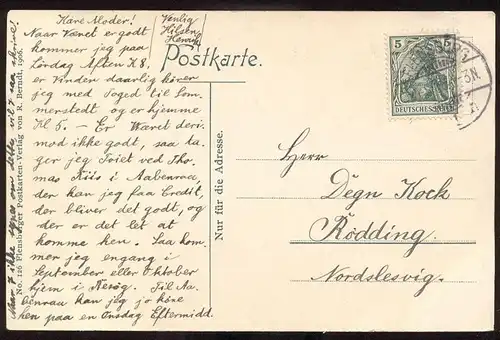 Kære Moder!
Naar Vejret er godt
kommer jeg paa
Lördag Aften Kl 8,
er Vinden daarlig kører
jeg med Toget til Som-
merstedt og er hjemme
Kl 5. – Er Været deri-
mod ikke godt, saa ta-
ger jeg Toiet ved Tho-
mas Riis i Aabenraa,
der kan jeg faa Credit,
der bliver det godt, og
der er det let at
komme hen. Saa kom-
mer jeg engang i
September eller Oktober
hjem i Besøg. Til Aa-
benraa kan jeg jo köre
hen paa en Onsdag Eftermidd.
Venlig
Hilsen
Henrik
Postkarte.
Nur für die Adresse.
No. 126 Flensburger Postkarten-Verlag von R. Berndt, 1906.
ikke om dette, vil I saa skrive!
5 5
DEUTSCHES REICH
Herr
Degn Kock
Rödding
Nordslesvig.